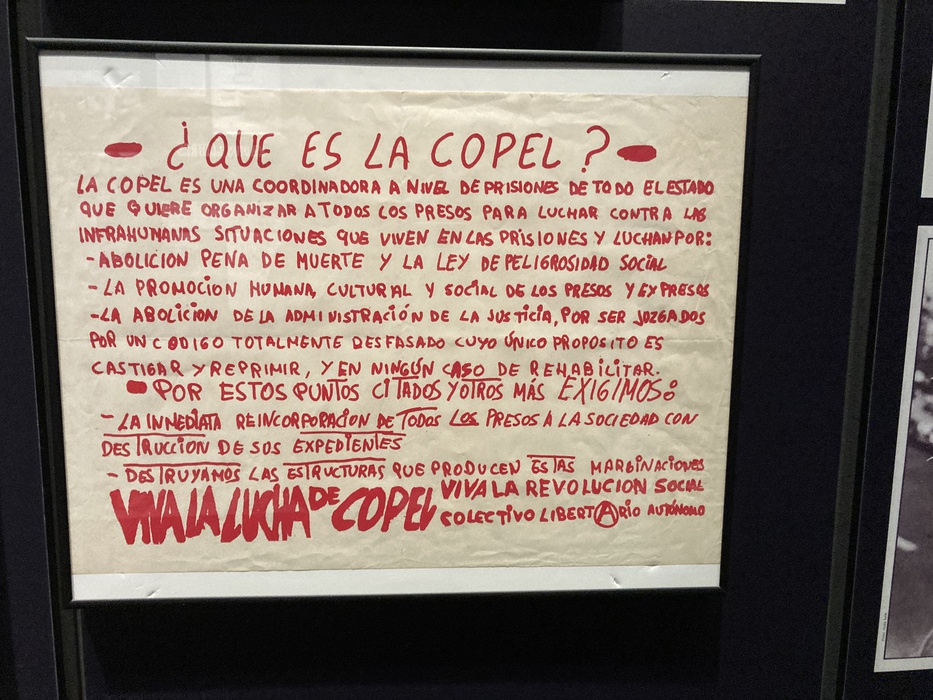 ¿QUE ES LA COPEL?
LA COPEL ES UNA COORDINADORA A NIVEL DE PRISIONES DE TODO EL ESTADO
QUE QUIERE ORGANIZAR A TODOS LOS PRESOS PARA LUCHAR CONTRA LAS
INFRAHUMANAS SITUACIONES QUE VIVEN EN LAS PRISIONES Y LUCHAN POR:
-ABOLICION PENA DE MUERTE Y LA LEY DE PELIGROSIDAD SOCIAL
-LA PROMOCION HUMANA, CULTURAL Y SOCIAL DE LOS PRESOS Y EXPRESOS
-LA ABOLICION DE LA ADMINISTRACIÓN DE LA JUSTICIA, POR SER JUZGADOS
POR UN CODIGO TOTALMENTE DESFASADO CUYO ÚNICO PROPOSITO ES
CASTIGAR Y REPRIMIR, Y EN NINGÚN CASO DE REHABILITAR.
POR ESTOS PUNTOS CITADOS Y OTROS MÁS EXIGIMOS:
- LA INMEDIATA REINCORPORACION DE TODOS LOS PRESOS A LA SOCIEDAD CON
DESTRUCCION DE SOS EXPEDIENTES
- DESTRUYAMOS LAS ESTRUCTURAS QUE PRODUCEN ESTAS MARGINACIONES
VIVA LA LUCHA DE COPEL VIVA LA REVOLUCION SOCIAL
COLECTIVO LIBERTARIO AUTÓNOMO